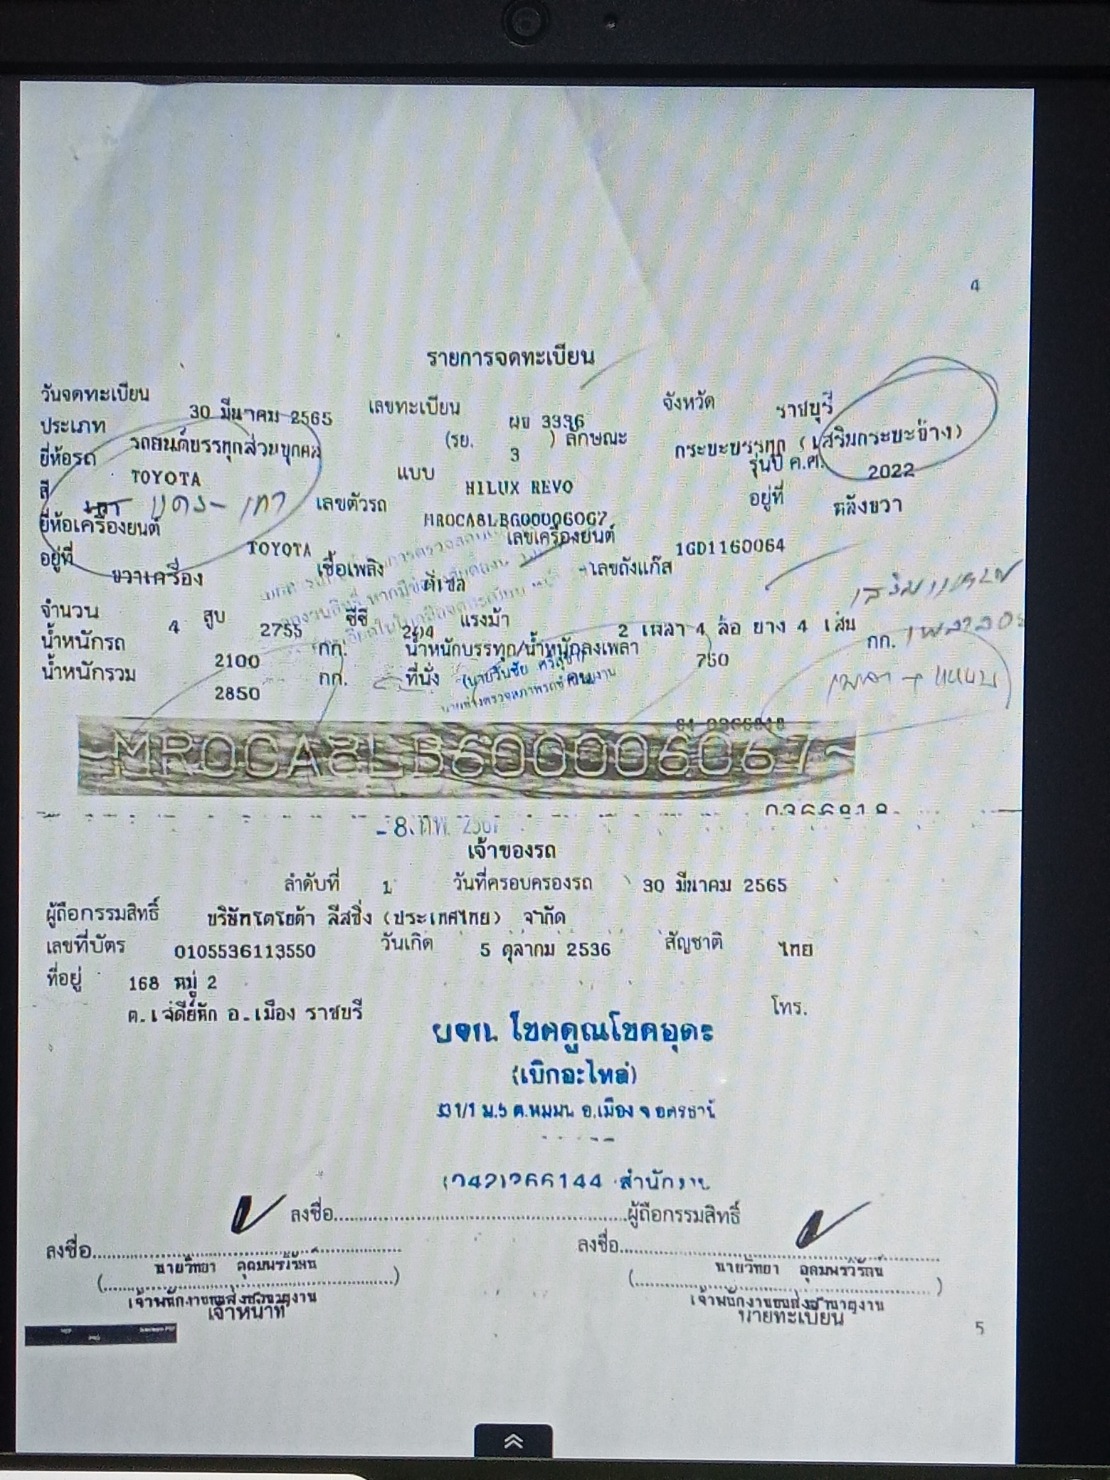 4
รายการจดทะเบียน
วันจดทะเบียน 30 มีนาคม 2565 เลขทะเบียน ผข 3336 จังหวัด ราชบุรี
ประเภท รถยนต์บรรทุกส่วนบุคคล (รย. 3 ) ลักษณะ กระบะบรรทุก (เสริมกระบะข้าง)
ยี่ห้อรถ TOYOTA แบบ HILUX REVO รุ่นปี ค.ศ. 2022
สี เทา แดง - เทา เลขตัวรถ MR0CA8LB600006067 อยู่ที่ หลังขวา
ยี่ห้อเครื่องยนต์ TOYOTA เลขเครื่องยนต์ 1GD1160064
อยู่ที่ ขวาเครื่อง เชื้อเพลิง ดีเซล เลขถังแก๊ส
จำนวน 4 สูบ 2755 ซีซี 204 แรงม้า 2 เพลา 4 ล้อ ยาง 4 เส้น
น้ำหนักรถ 2100 กก. น้ำหนักบรรทุก/น้ำหนักลงเพลา 750 กก.
น้ำหนักรวม 2850 กก. ที่นั่ง คน
เสริมแหนบ
เพลาลอย
เพลา + แหนบ
MR0CA8LB600006067
0366818
- 8. ก.พ. 2567
เจ้าของรถ
ลำดับที่ 1 วันที่ครอบครองรถ 30 มีนาคม 2565
ผู้ถือกรรมสิทธิ์ บริษัทโตโยต้า ลีสซิ่ง (ประเทศไทย) จำกัด
เลขที่บัตร 0105536113550 วันเกิด 5 ตุลาคม 2536 สัญชาติ ไทย
ที่อยู่ 168 หมู่ 2
ต.เจดีย์หัก อ.เมือง ราชบุรี โทร.
โชคคูณโชคอุดร
(เบิกอะไหล่)
ม.5 ต.หมูม่น อ.เมือง จ อุดรธานี
(042)266144 สำนักงาน
ลงชื่อ ผู้ถือกรรมสิทธิ์
ลงชื่อ ลงชื่อ
นายวิทยา อุดมพรวิรัตน์ นายวิทยา อุดมพรวิรัตน์
เจ้าพนักงานขนส่งชำนาญงาน เจ้าพนักงานขนส่งชำนาญงาน
เจ้าหน้าที่ นายทะเบียน
5